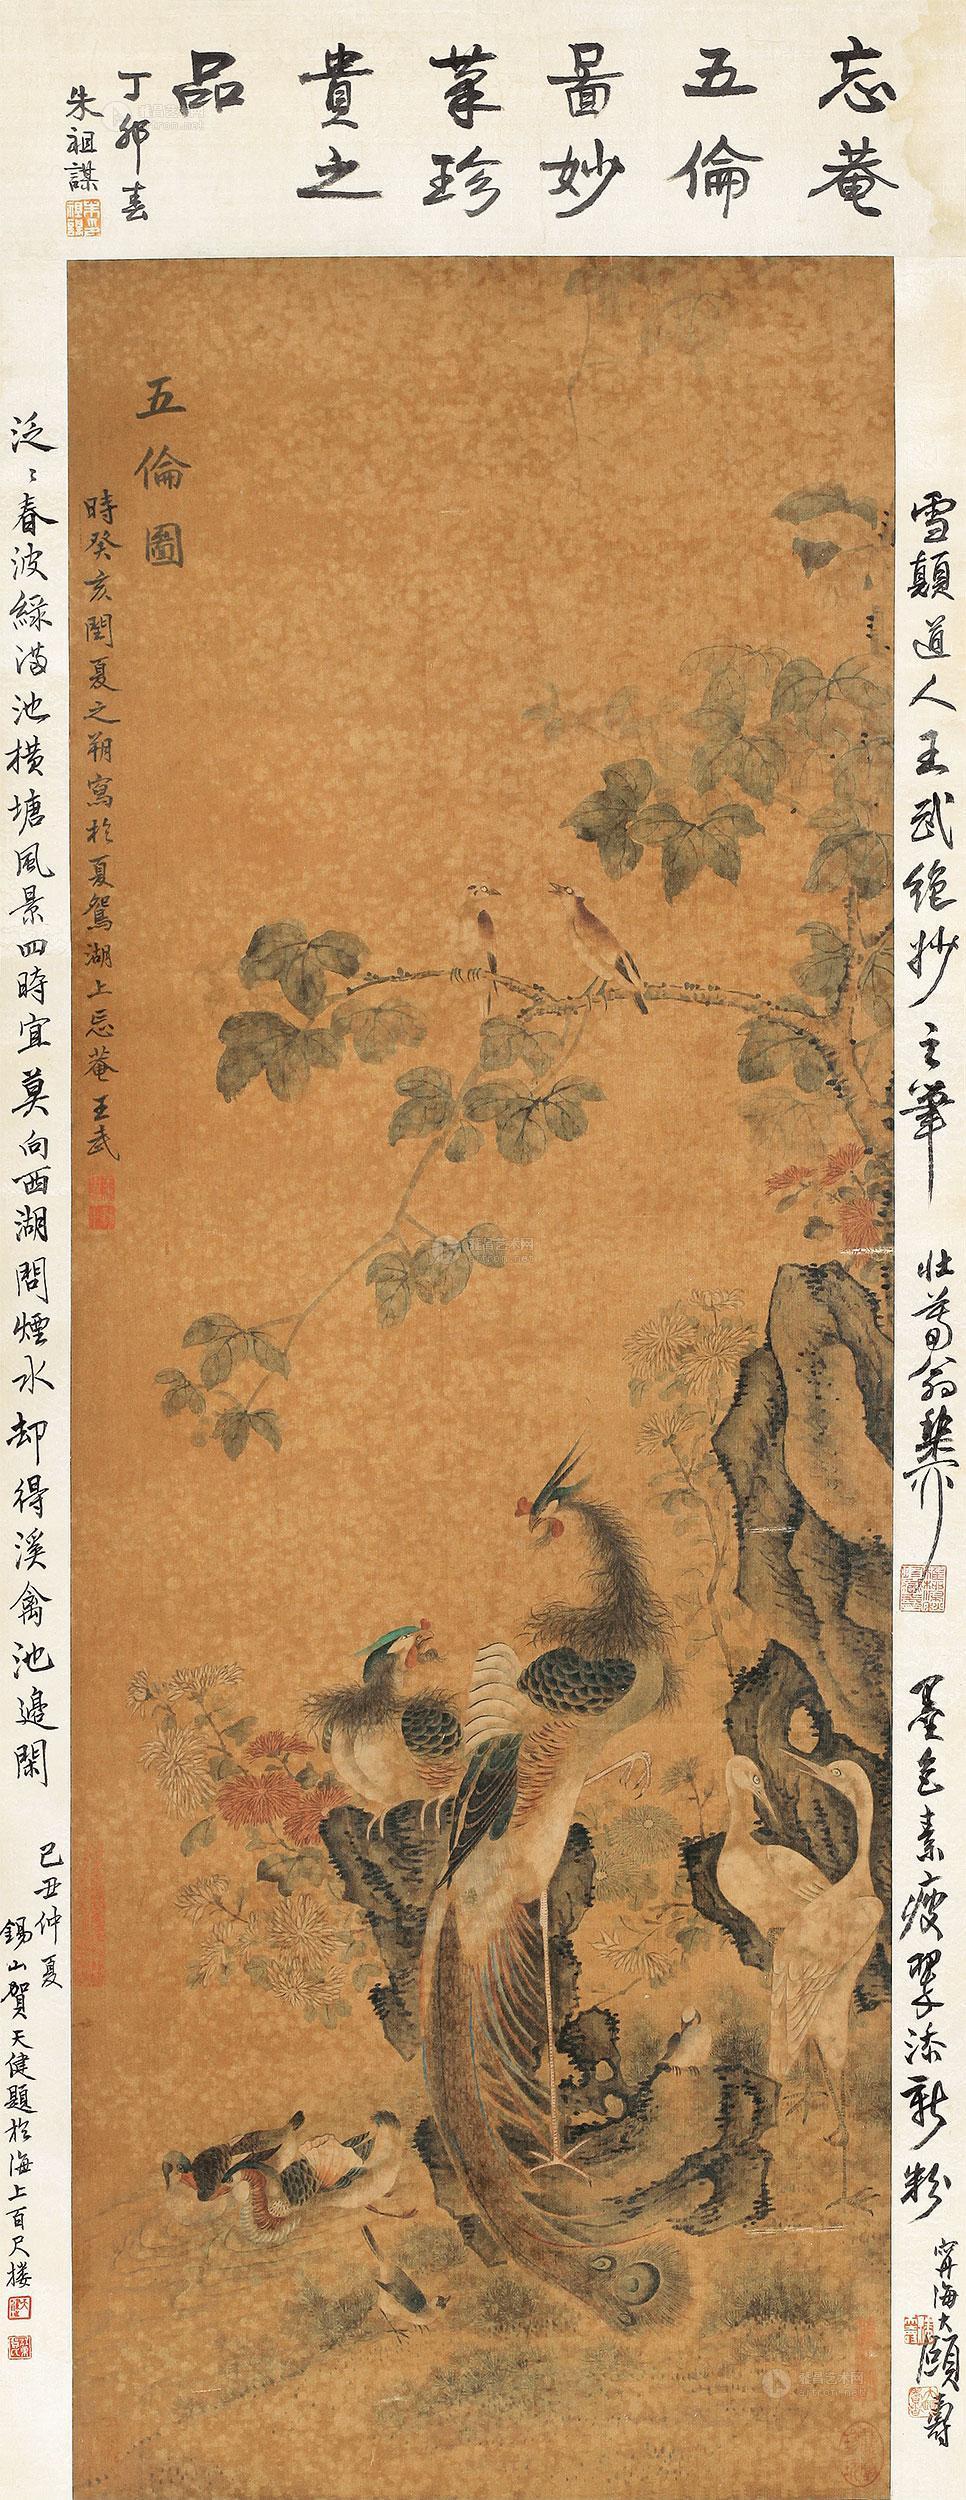 忘菴
五倫
圖妙
筆珍
貴之
品
丁卯春
朱祖謀
五倫圖
時癸亥閏夏之朔寫於夏鴛湖上忘菴王武
雪顛道人王武絕妙之筆
墨色素瘦翠添新粉
寧海大頤壽
泛〻春波綠滿池橫塘風景四時宜莫向西湖問煙水却得溪禽池邊閑
己丑仲夏
錫山賀天健題於海上百尺樓
雅昌艺术网
artron.net